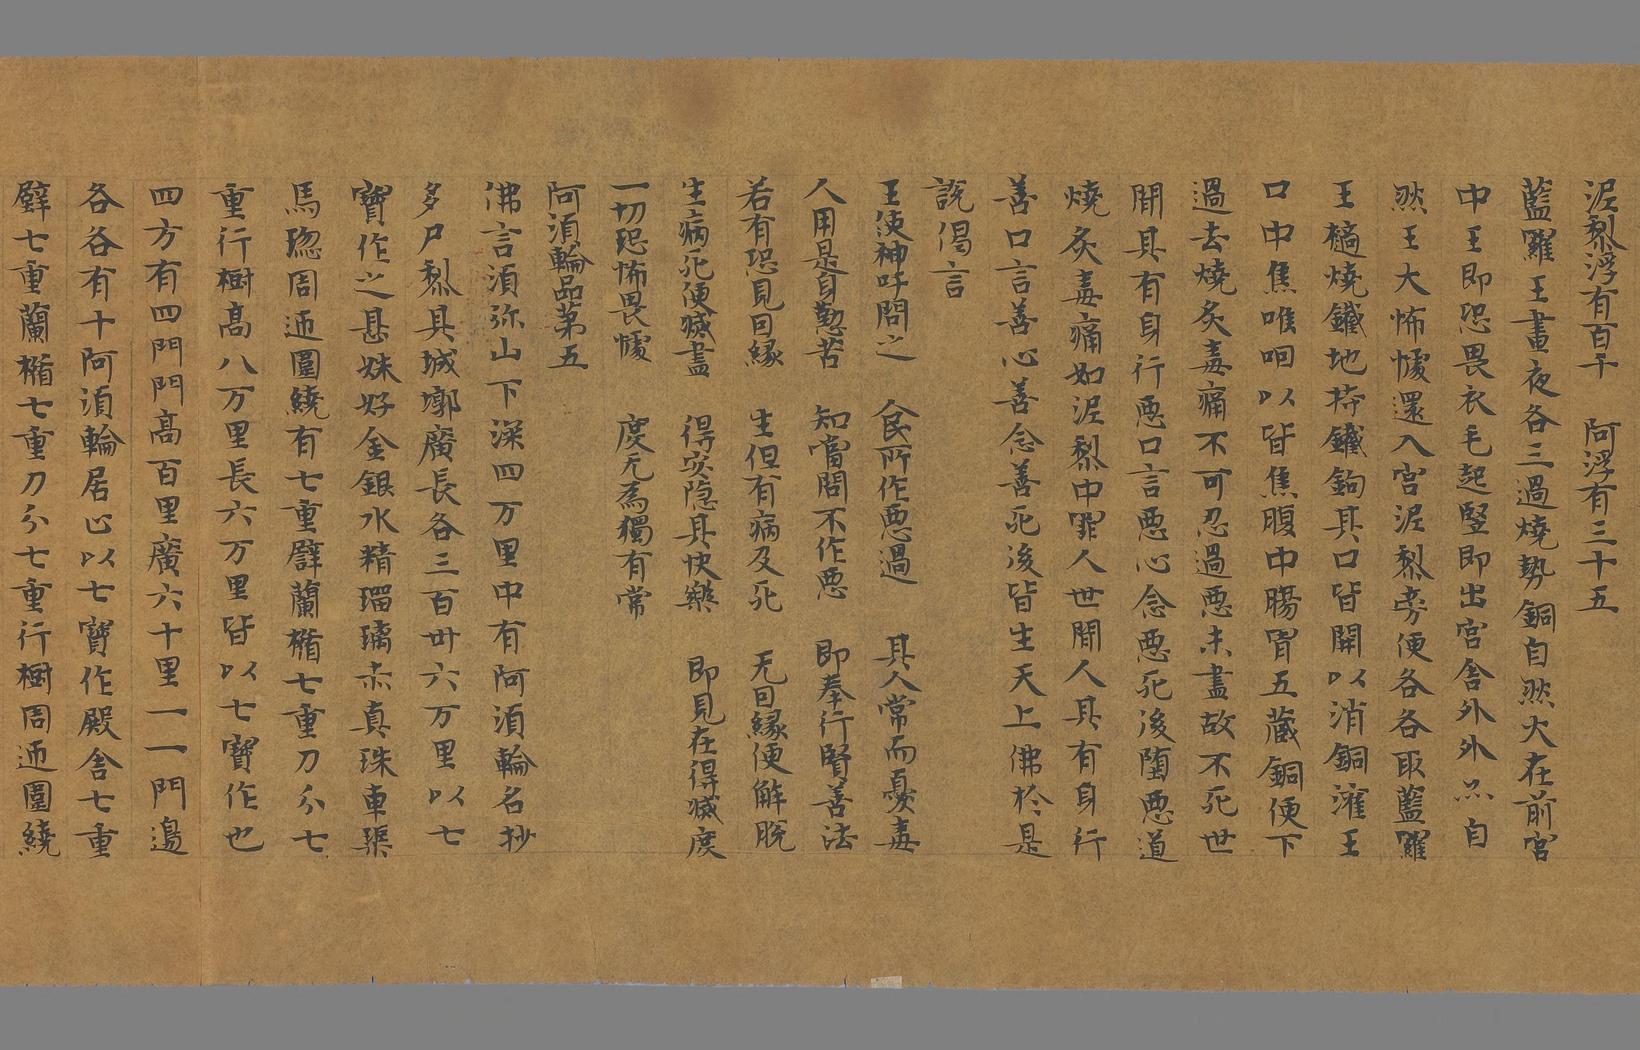 泥梨浮有百千　阿浮有三十五
藍羅王晝夜各三過燒熱銅自然火在前宮
中王即恐畏衣毛起竪即出宮舍外外亦自
然王大怖懅還入宮泥梨旁便各各取藍羅
王檛燒鐵地持鐵鉤其口皆開以消銅灌王
口中焦喉咽以皆焦腹中腸胃五藏銅便下
過去燒炙毒痛不可忍過惡未盡故不死世
間其有身行惡口言惡心念惡死後墮惡道
燒炙毒痛如泥梨中罪人世間人其有身行
善口言善心善念善死後皆生天上佛於是
說偈言
王使神呼問之　食所作惡過　其人常而憂毒
人用是身懃苦　知當問不作惡　即奉行賢善法
若有恐見因緣　生但有病及死　无因緣便解脫
生病死便滅盡　得安隱其快樂　即見在得滅度
一切恐怖畏懅　度无為獨有常
阿須輪品第五
佛言須弥山下深四万里中有阿須輪名抄
多尸梨其城墎廣長各三百卅六万里以七
寶作之甚姝好金銀水精瑠璃赤真珠車璖
馬瑙周迊圍繞有七重壁蘭楯七重刀分七
重行樹高八万里長六万里皆以七寶作也
四方有四門門高百里廣六十里一一門邊
各各有十阿須輪居止以七寶作殿舍七重
壁七重蘭楯七重刀分七重行樹周迊圍繞